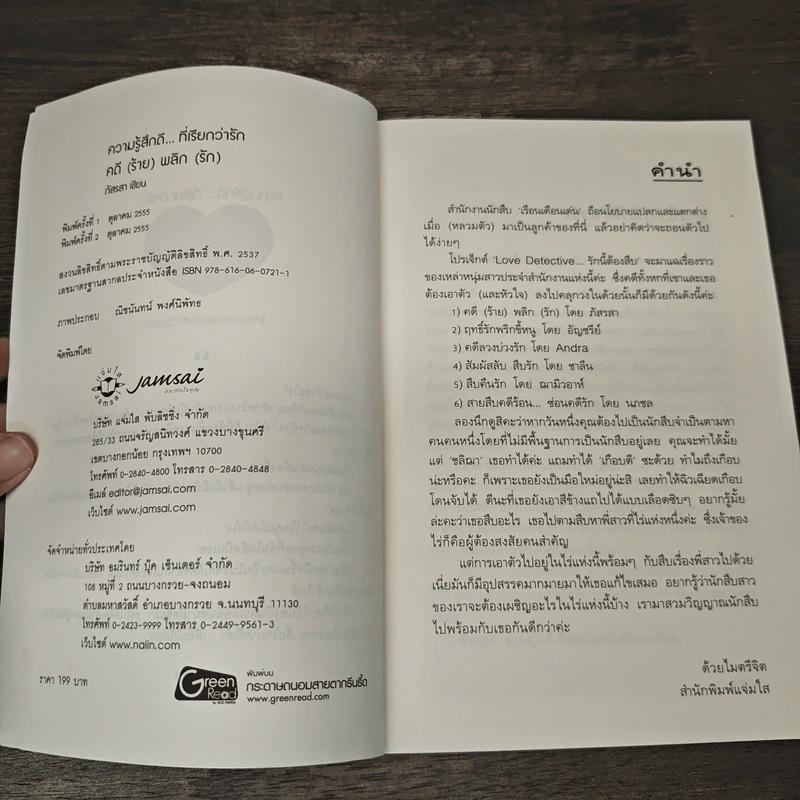 ความรู้สึกดี... ที่เรียกว่ารัก
คดี (ร้าย) พลิก (รัก)
ภัสรสา เขียน
พิมพ์ครั้งที่ 1 ตุลาคม 2555
พิมพ์ครั้งที่ 2 ตุลาคม 2555
สงวนลิขสิทธิ์ตามพระราชบัญญัติลิขสิทธิ์ พ.ศ. 2537
เลขมาตรฐานสากลประจำหนังสือ ISBN 978-616-06-0721-1
ภาพประกอบ ณิชนันทน์ พงศ์นิพัทธ
จัดพิมพ์โดย
แจ่มใส
Jamsai
Jamsai
บริษัท แจ่มใส พับลิชชิ่ง จำกัด
285/33 ถนนจรัญสนิทวงศ์ แขวงบางขุนศรี
เขตบางกอกน้อย กรุงเทพฯ 10700
โทรศัพท์ 0-2840-4800 โทรสาร 0-2840-4848
อีเมล์ editor@jamsai.com
เว็บไซต์ www.jamsai.com
จัดจำหน่ายทั่วประเทศโดย
บริษัท อมรินทร์ บุ๊ค เซ็นเตอร์ จำกัด
108 หมู่ที่ 2 ถนนบางกรวย-จงถนอม
ตำบลมหาสวัสดิ์ อำเภอบางกรวย จ.นนทบุรี 11130
โทรศัพท์ 0-2423-9999 โทรสาร 0-2449-9561-3
เว็บไซต์ www.naiin.com
ราคา 199 บาท
Green
Read
พิมพ์บน
กระดาษถนอมสายตากรีนรี้ด
www.greenread.com
คำนำ
สำนักงานนักสืบ 'เรือนเดือนเด่น' ถือนโยบายแปลกและแตกต่าง
เมื่อ (หลวมตัว) มาเป็นลูกค้าของที่นี่ แล้วอย่าคิดว่าจะถอนตัวไป
ได้ง่ายๆ
โปรเจ็กต์ 'Love Detective... รักนี้ต้องสืบ' จะมาแฉเรื่องราว
ของเหล่าหนุ่มสาวประจำสำนักงานแห่งนี้ค่ะ ซึ่งคดีทั้งหกที่เขาและเธอ
ต้องเอาตัว (และหัวใจ) ลงไปคลุกวงในด้วยนั้นก็มีด้วยกันดังนี้ค่ะ
1) คดี (ร้าย) พลิก (รัก) โดย ภัสรสา
2) ฤทธิ์รักพริกขี้หนู โดย อัญชรีย์
3) คดีลวงบ่วงรัก โดย Andra
4) สัมผัสลับ สืบรัก โดย ชาลีน
5) สืบคืนรัก โดย ฌามิวอาห์
6) สายสืบคดีร้อน... ซ่อนคดีรัก โดย นภชล
ลองนึกดูสิคะว่าหากวันหนึ่งคุณต้องไปเป็นนักสืบจำเป็นตามหา
คนคนหนึ่งโดยที่ไม่มีพื้นฐานการเป็นนักสืบอยู่เลย คุณจะทำได้มั้ย
แต่ 'ชลิฌา' เธอทำได้ค่ะ แถมทำได้ 'เกือบดี' ซะด้วย ทำไมถึงเกือบ
น่ะหรือคะ ก็เพราะเธอยังเป็นมือใหม่อยู่น่ะสิ เลยทำให้ฉิวเฉียดเกือบ
โดนจับได้ ดีนะที่เธอยังเอาสีข้างแถไปได้แบบเลือดซิบๆ อยากรู้มั้ย
ล่ะคะว่าเธอสืบอะไร เธอไปตามสืบหาพี่สาวที่ไร่แห่งหนึ่งค่ะ ซึ่งเจ้าของ
ไร่ก็คือผู้ต้องสงสัยคนสำคัญ
แต่การเอาตัวไปอยู่ในไร่แห่งนี้พร้อมๆ กับสืบเรื่องพี่สาวไปด้วย
เนี่ยมันก็มีอุปสรรคมากมายมาให้เธอแก้ไขเสมอ อยากรู้ว่านักสืบสาว
ของเราจะต้องเผชิญอะไรในไร่แห่งนี้บ้าง เรามาสวมวิญญาณนักสืบ
ไปพร้อมกับเธอกันดีกว่าค่ะ
ด้วยไมตรีจิต
สำนักพิมพ์แจ่มใส